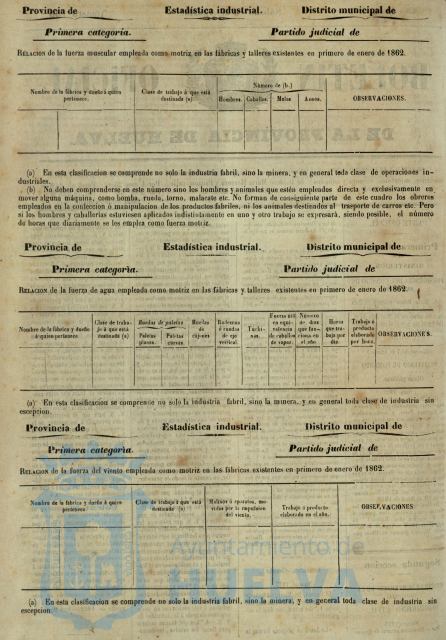 Provincia de Estadística industrial. Distrito municipal de
Primera categoria. Partido judicial de
RELACION de la fuerza muscular empleada como motriz en las fábricas y talleres existentes en primero de enero de 1862.
Nombre de la fábrica y dueño á quien pertenece.
Clase de trabajo á que está destinada (a)
Número de (b.)
Hombres. Caballos. Mulas Asnos.
OBSERVACIONES.
(a) En esta clasificacion se comprende no solo la industria fabril, sino la minera, y en general toda clase de operaciones in-
dustriales.
(b) No deben comprenderse en este número sino los hombres y animales que estén empleados directa y exclusivamente en
mover alguna máquina, como bomba, rueda, torno, malacate etc. No forman de consiguiente parte de este cuadro los obreros
empleados en la confeccion ó manipulacion de los productos fabriles, ni los animales destinados al trasporte de carros etc. Pero
si los hombres y caballerías estuviesen aplicados indistintamente en uno y otro trabajo se expresará, siendo posible, el número
de horas que diariamente se les emplea como fuerza motriz.
Provincia de Estadística industrial. Distrito municipal de
Primera categoria. Partido judicial de
RELACION de la fuerza de agua empleada como motriz en las fábricas y talleres existentes en primero de enero de 1862.
Nombre de la fábrica y dueño á quien pertenece
Clase de traba-
jo á que está
destinada (a)
Ruedas de paletas
Paletas planas.
Paletas curvas.
Ruedas de cajones
Rodeznos ó ruedas de eje vertical.
Turbi-
nas.
Fuerza útil en equi-
valencia de caballos de vapor.
Número de dias que fun-
ciona en el año.
Horas que tra-
baja por dia.
Trabajo ó producto elaborado por hora.
OBSERVACIONES.
(a) En esta clasificacion se comprende no solo la industria fabril, sino la minera, y en general toda clase de industria sin
escepcion.
Provincia de Estadística industrial. Distrito municipal de
Primera categoria. Partido judicial de
RELACION de la fuerza del viento empleada como motriz en las fábricas existentes en primero de enero de 1862.
Nombre de la fábrica y dueño á quien pertenece
Clase de trabajo á que está destinada (a)
Molinos ó aparatos, mo-
vidos por la impulsion del viento.
Trabajo ó producto elaborado en el año.
OBSERVACIONES
(a) En esta clasificacion se comprende no solo la industria fabril, sino la minera, y en general toda clase de industria sin
escepcion.
Ayuntamiento de
HUELVA